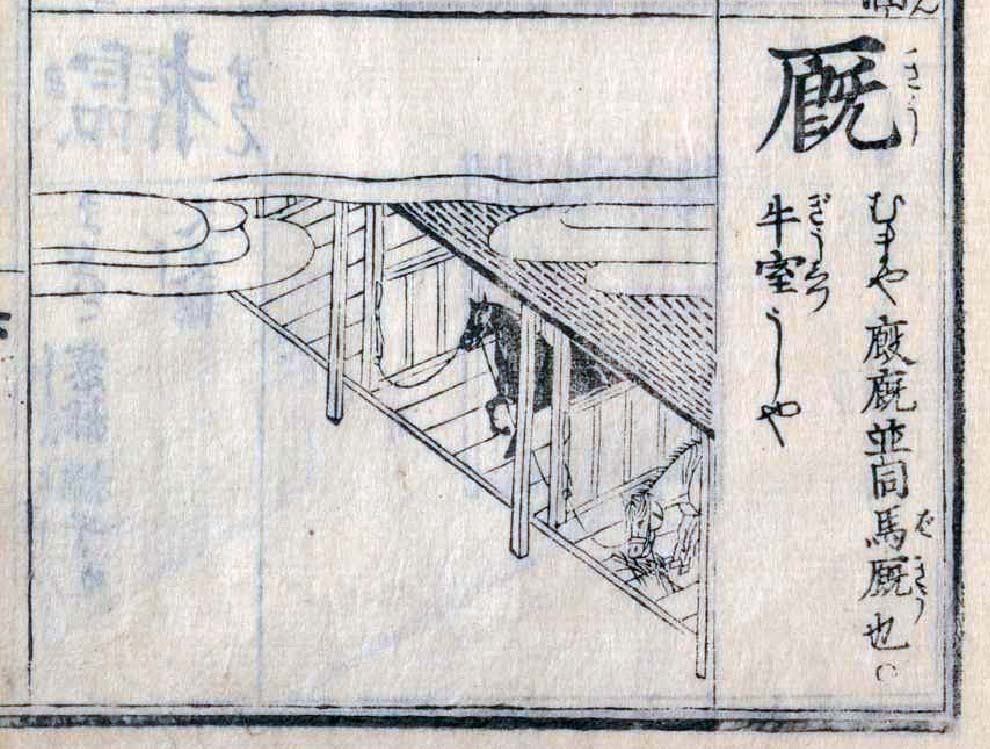 厩
きう
むまや廏廐並同馬厩也○
ばきう
牛室うしや
ぎうしつ